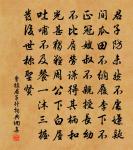 君子防未然不處嫌疑
間瓜田不納履李下不
正冠嫂叔不親授長幼
不比肩勞謙得其柄和
光甚獨難周公下白屋
吐哺不及餐一沐三握
髮後世稱聖賢